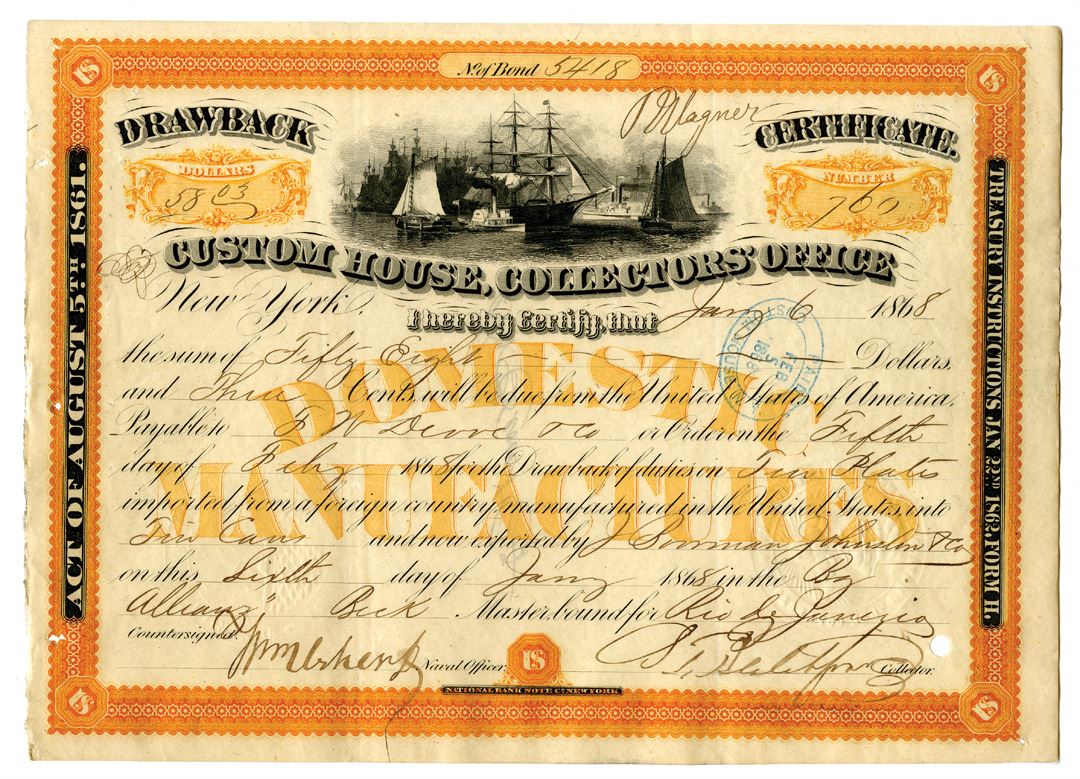 No. of Bond 5418
DRAWBACK
CERTIFICATE.
Wagner
DOLLARS
58 03
NUMBER
760
CUSTOM HOUSE, COLLECTORS' OFFICE
New York. Jany 6 1868
I hereby Certify, that
the sum of Fifty Eight Dollars,
and Three Cents, will be due from the United States of America,
Payable to F W Devoe & Co or Order on the Fifth
day of Feby 1868 for the Drawback of duties on Tin Plates
imported from a foreign country manufactured in the United States, into
Tin Cans and now exported by J Dorman Johnston & Co
on this Sixth day of Jany 1868 in the Bg
Allianz, Beck Master bound for Rio de Janeiro
Countersigned.
Naval Officer.
Collector.
DOMESTIC
MANUFACTURES
US
US
US
US
US
NATIONAL BANK NOTE Co. NEW YORK
ACT OF AUGUST 5TH 1861.
TREASURY INSTRUCTIONS, JAN. 22ND 1863, FORM H.
CUSTOM HOUSE
PAID
FEB
5
1868